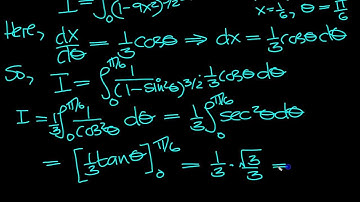 I = ∫₀ 1/(1-9x²)^{3/2}
x = 1/6, θ = π/6
Here, dx/dθ = 1/3 cosθ ⇒ dx = 1/3 cosθ dθ
So, I = ∫₀^{π/6} 1/(1-sin²θ)^{3/2} · 1/3 cosθ dθ
I = 1/3 ∫₀^{π/6} 1/cos²θ dθ = 1/3 ∫₀^{π/6} sec²θ dθ
= [1/3 tanθ]₀^{π/6} = 1/3 · √3/3 =